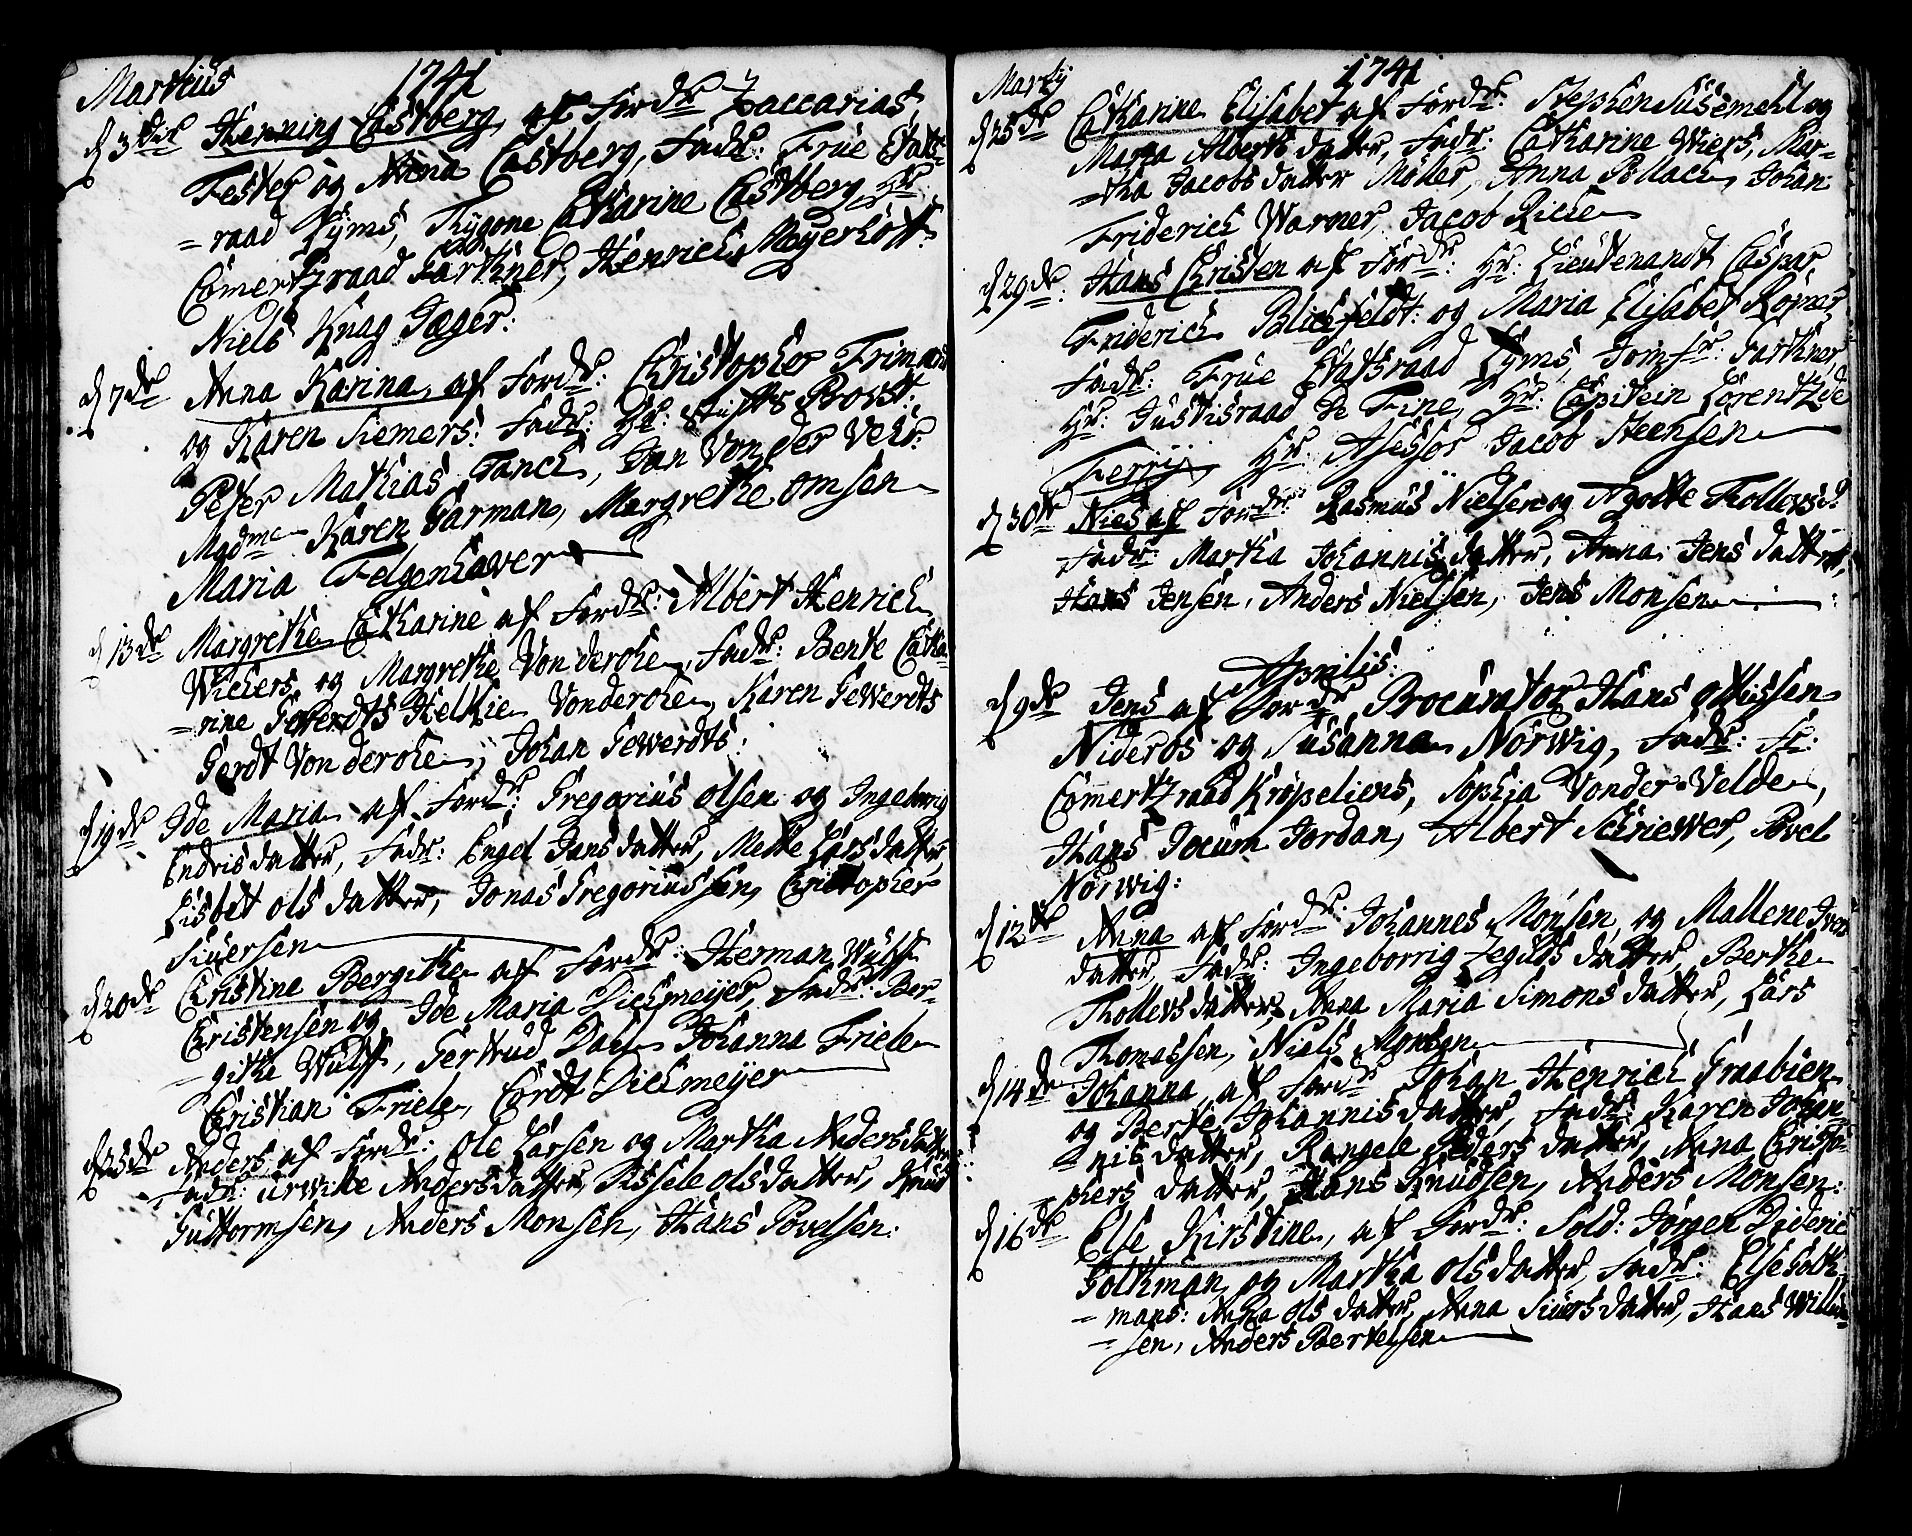 Martius 1741
d 3die Henning Castberg, af Fordr Zaccarias
Fester og Anna Castberg, Fadr: Frue Etats
=raad Lÿms, Thÿgone Catharine Castberg, Hr:
Comertzraad Garthner, Henrich Meÿerhoff
Niels Knag Jæger:
d 7de Anna Karina, af Fordr: Christopher Friman
og Karen Siemers: Fadr: Hr: Stifts Provst:
Peter Mathias Tanch, Jan Von der Vehr:
Madme Karen Garman, Margrethe Omsen
Maria Felgenhaver
d 13de Margrethe Catharine af Fordr: Albert Henrich
Wichers og Margrethe Vonderohe, Fadr: Bente Catha
=rine Gewerdts Helthie Vonderohe, Karen Gewerdts
Gerdt Vonderohe, Johan Gewerdts:
d 19de Ide Maria af Fordr: Gregorius Olsen og Ingeborrig
Endrisdatter, Fadr: Engel Jansdatter, Mette Larsdatter,
Lisbet Olsdatter, Jonas Gregoriussen, Christopher
Siuersen
d 20de Christine Bergithe af Fordr: Herman Wulff
Christensen og Ide Maria Dichmeÿer, Fadr: Ber-
=githe Wulff, Gertrud Dahl Johanna Friele
Christian Friele, Cordt Dichmeÿer
d 25de Anders af Fordr: Ole Larsen og Martha Andersdatter
Fadr: Andersdatter, Sissele Olsdatter, Knud
Guttormsen, Anders Monsen, Hans Povelsen:
Martÿ 1741
d 25de Catharine Elisabet af Fordr: Stephen Susemehl og
Maria Albertsdatter, Fadr: Catharine Wiers, Mar-
=tha Jacobsdatter Møller, Anna Pollach, Johan
Friderich Warner, Jacob Riche
d 29de: Hans Christen af Fordr: Hr: Lieutenandt Caspar
Friderich Blichfeldt: og Maria Elisabet
Fadr: Frue Etatsraad Lÿms, Jomfr: Garthner,
Hr: Justisraad De Fine, Hr: Capitein Lorentz de
Ferrÿ, Hr: Asessor Jacob Steensen
d 30te Niels af Fordr: Rasmus Nielsen og Agothe Thollevsd:
Fadr: Martha Johannisdatter, Anna Jensdatter,
Hans Jensen, Anders Nielsen, Jens Monsen
Aprilis:
d 9de Jens af Fordr Procurator Hans Ottissen
Nideros og Susanna Nørwig, Fadr: Fr:
Comertzraad Krøpeliens, Sophia Vonder-Velde,
Hans Jocum Jordan, Albert Schriewer, Povel
Nørwig:
d 12te Anna af Fordr: Johannes Monsen, og Mallene
datter, Fadr: Ingeborrig datter, Berthe
Thollevsdatter, Anna Maria Simonsdatter, Lars
Thomassen, Niels Monsen
d 14de Johanna, af Fordr Johan Henrich Graabien
og Berte Johannisdatter, Fadr: Karen Johan
=nisdatter, Rangele Pedersdatter, Anna Christo-
=phersdatter, Hans Knudsen, Anders Monsen:
d 16de Else Kirstine, af Fordr: Sold: Jørgen Dideric
Goltman og Martha Olsdatter, Fadr: Else Golt-
=mans: Anna Olsdatter, Anna Siursdatter, Hans Willum-
=sen, Anders Bertelsen